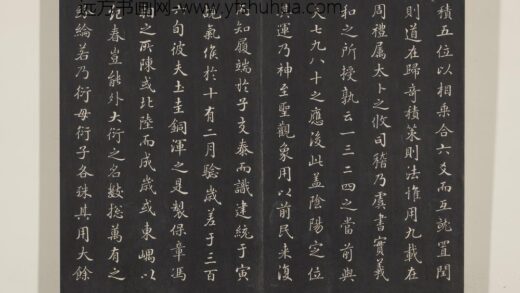 远方书画网-www.yfshuhua.com
積五位以相乗合六爻而互就置閏
則道在歸奇積策則法惟用九載在
周禮属太卜之收司稽乃虞書實羲
和之所授孰云一三二四之當前與
夫七九八十之應後此盖陰陽定位
其運乃神至聖觀象用以前民来復
而知履端於子交泰而識建統于寅
説氣俟於十有二月驗歲差于三百
六旬彼夫土圭銅渾之是製保章馮
相之所陳或北陸而成歲或東嵎以
紀春豈能外大衍之名數揔萬有之
經綸若乃衍母衍子各殊其用大餘